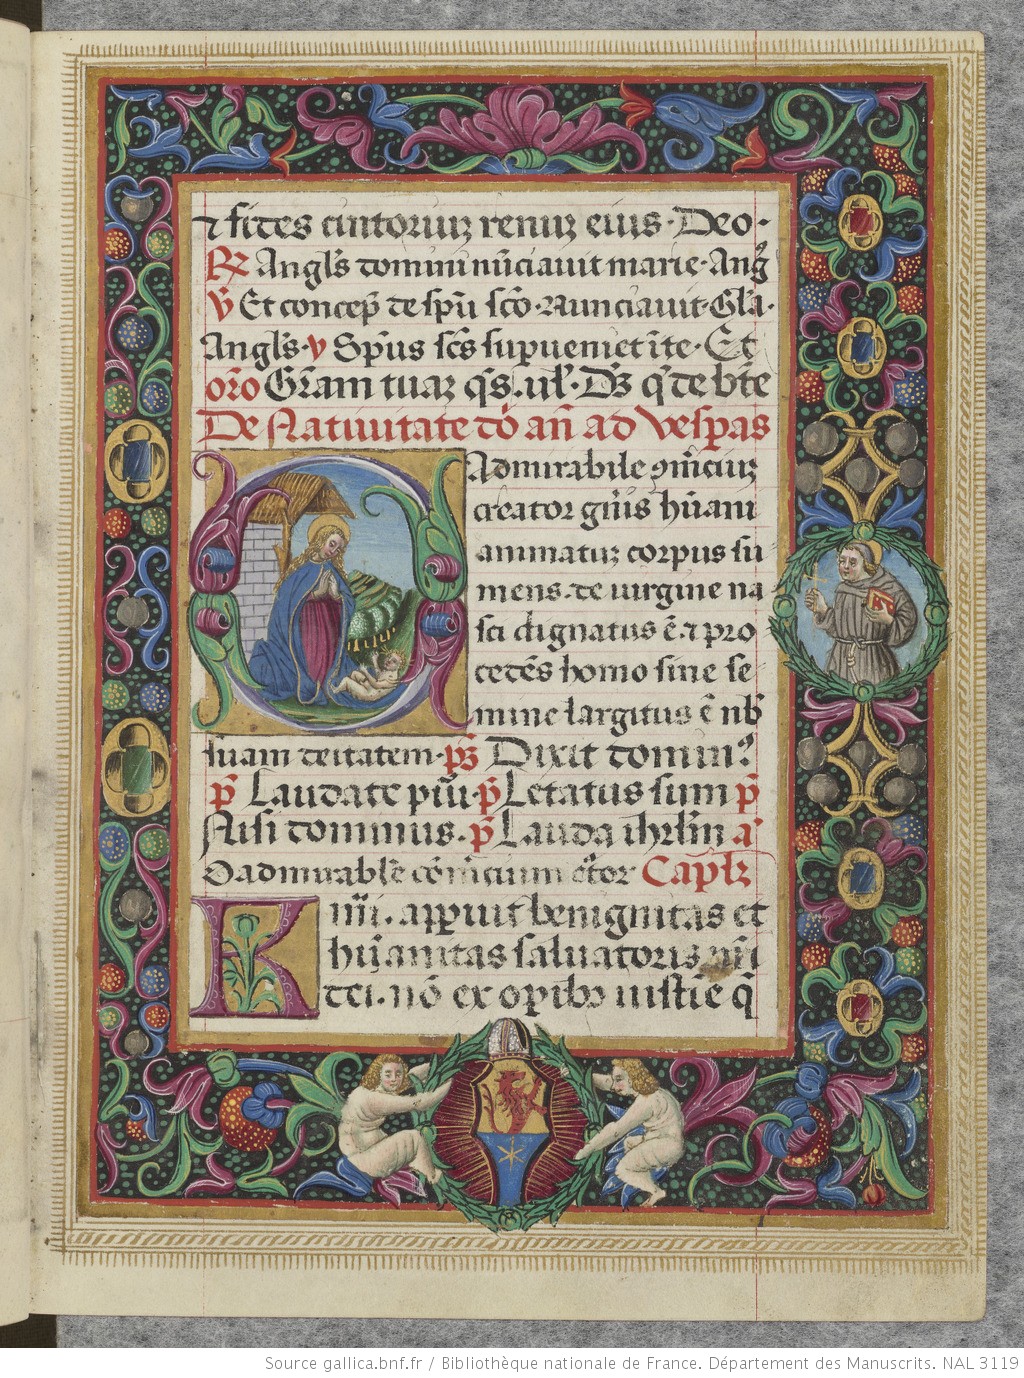 ⁊ fides cinctoriuʒ renuʒ eius · Deo ·
R͞x Angl's domini nūciavit marie · Ang̉
℣ Et concep̄ de sp̄u scō · Nunciavit · Gl̄a ·
Angl's · v Sp̄us sc̄s supueniet īte · Et
or̄o Gr̄am tuaʒ q̄s . ul' · Ds̄ q̄ de bt̄e
De Nativitate dō an̄ ad vesp̄as
O Admirabile ꝯmerciuʒ
creator gn̄is hūani
animatuʒ corpus su
mens · de virgine na
sci dignatus ē · ⁊ pro
cedēs homo sine se
mine largitus ē nb̄
suam deitatem · ps̄ Dixit domin⁹
p̄ Laudate pūi · p̄ Letatus sum p̄
Nisi dominus · p̄ Lauda ihrlm̄ a'
O admirabile cōmercium c̄tor Cap̄lʒ
Kmi . apparuit benignitas et
hūanitas salvatoris nr̄i
dei . nō ex opibꝰ iustitie q̄
Source gallica.bnf.fr / Bibliothèque nationale de France. Département des Manuscrits. NAL 3119